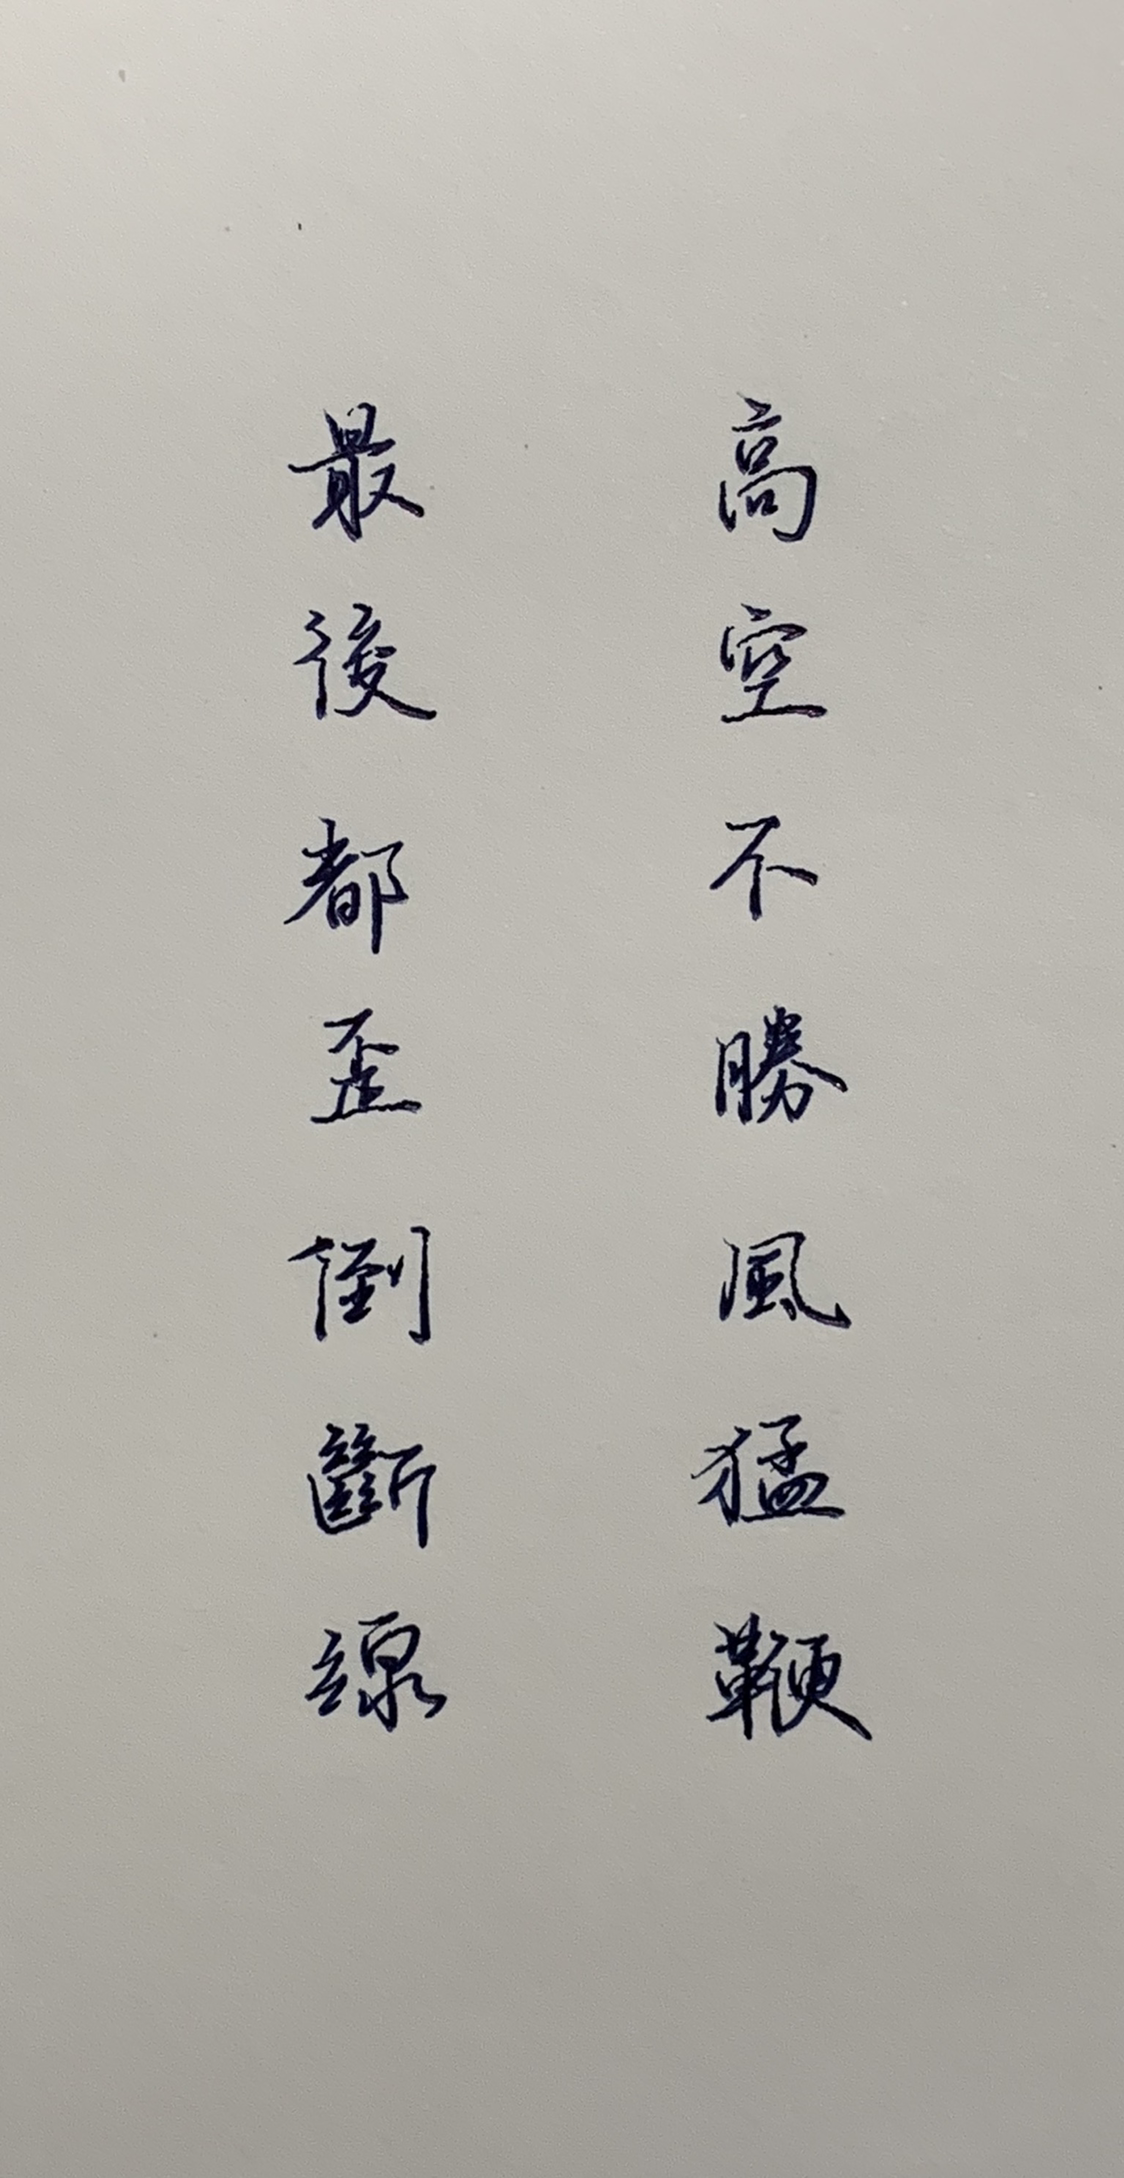 高空不勝風猛鞭
最後都歪倒斷線